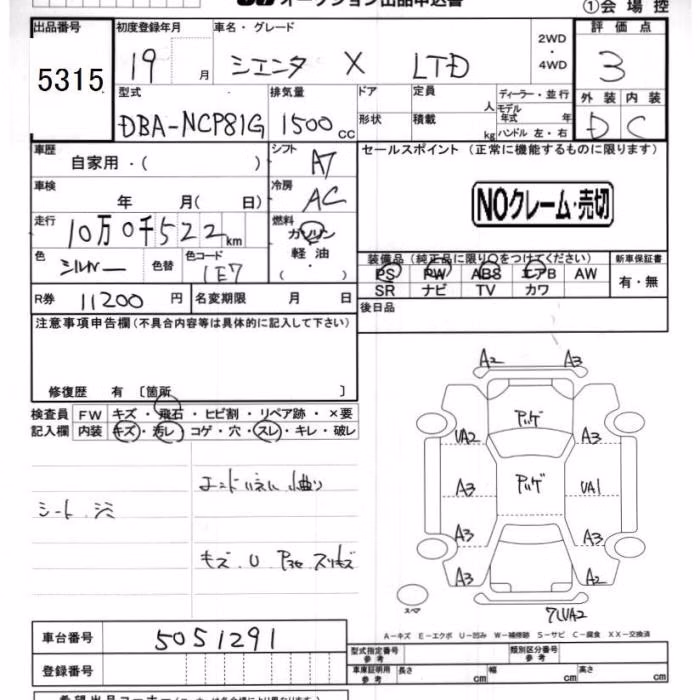 オークション出品申込書
①会場控
出品番号 初度登録年月 車名・グレード 2WD・4WD 評価点
5315 19 月 シエンタ X LTD 3
型式 排気量 ドア 定員 人 ディーラー・並行 外装 内装
DBA-NCP81G 1500cc 形状 積載 kg モデル年式 年 ハンドル 左・右 D C
車歴 自家用・( ) シフト AT セールスポイント (正常に機能するものに限ります)
車検 年 月( 日) 冷房 AC NOクレーム・売切
走行 10万0千522km 燃料 ガソリン・軽油・( )
色 シルバー 色替 色コード 1E7 装備品 (純正品に限り○をつけてください) 新車保証書
PS PW ABS エアB AW 有・無
SR ナビ TV カワ
R券 11200円 名変期限 月 日 後日品
注意事項申告欄(不具合内容等は具体的に記入して下さい)
修復歴 有 〔箇所 〕
検査員 FW キズ・飛石・ヒビ割・リペア跡・×要
記入欄 内装 キズ・汚レ・コゲ・穴・スレ・キレ・破レ
シート シミ
キズ U
A2 A3
UA2 A3
A3 UA1
A3 A3
A3 A2
スペア
UA2
A-キズ E-エクボ U-凹み W-補修跡 S-サビ C-腐食 XX-交換済
車台番号 5051291 型式指定番号 参考 類別区分番号 参考
登録番号 車庫証明用 参考 長さ cm 幅 cm 高さ cm